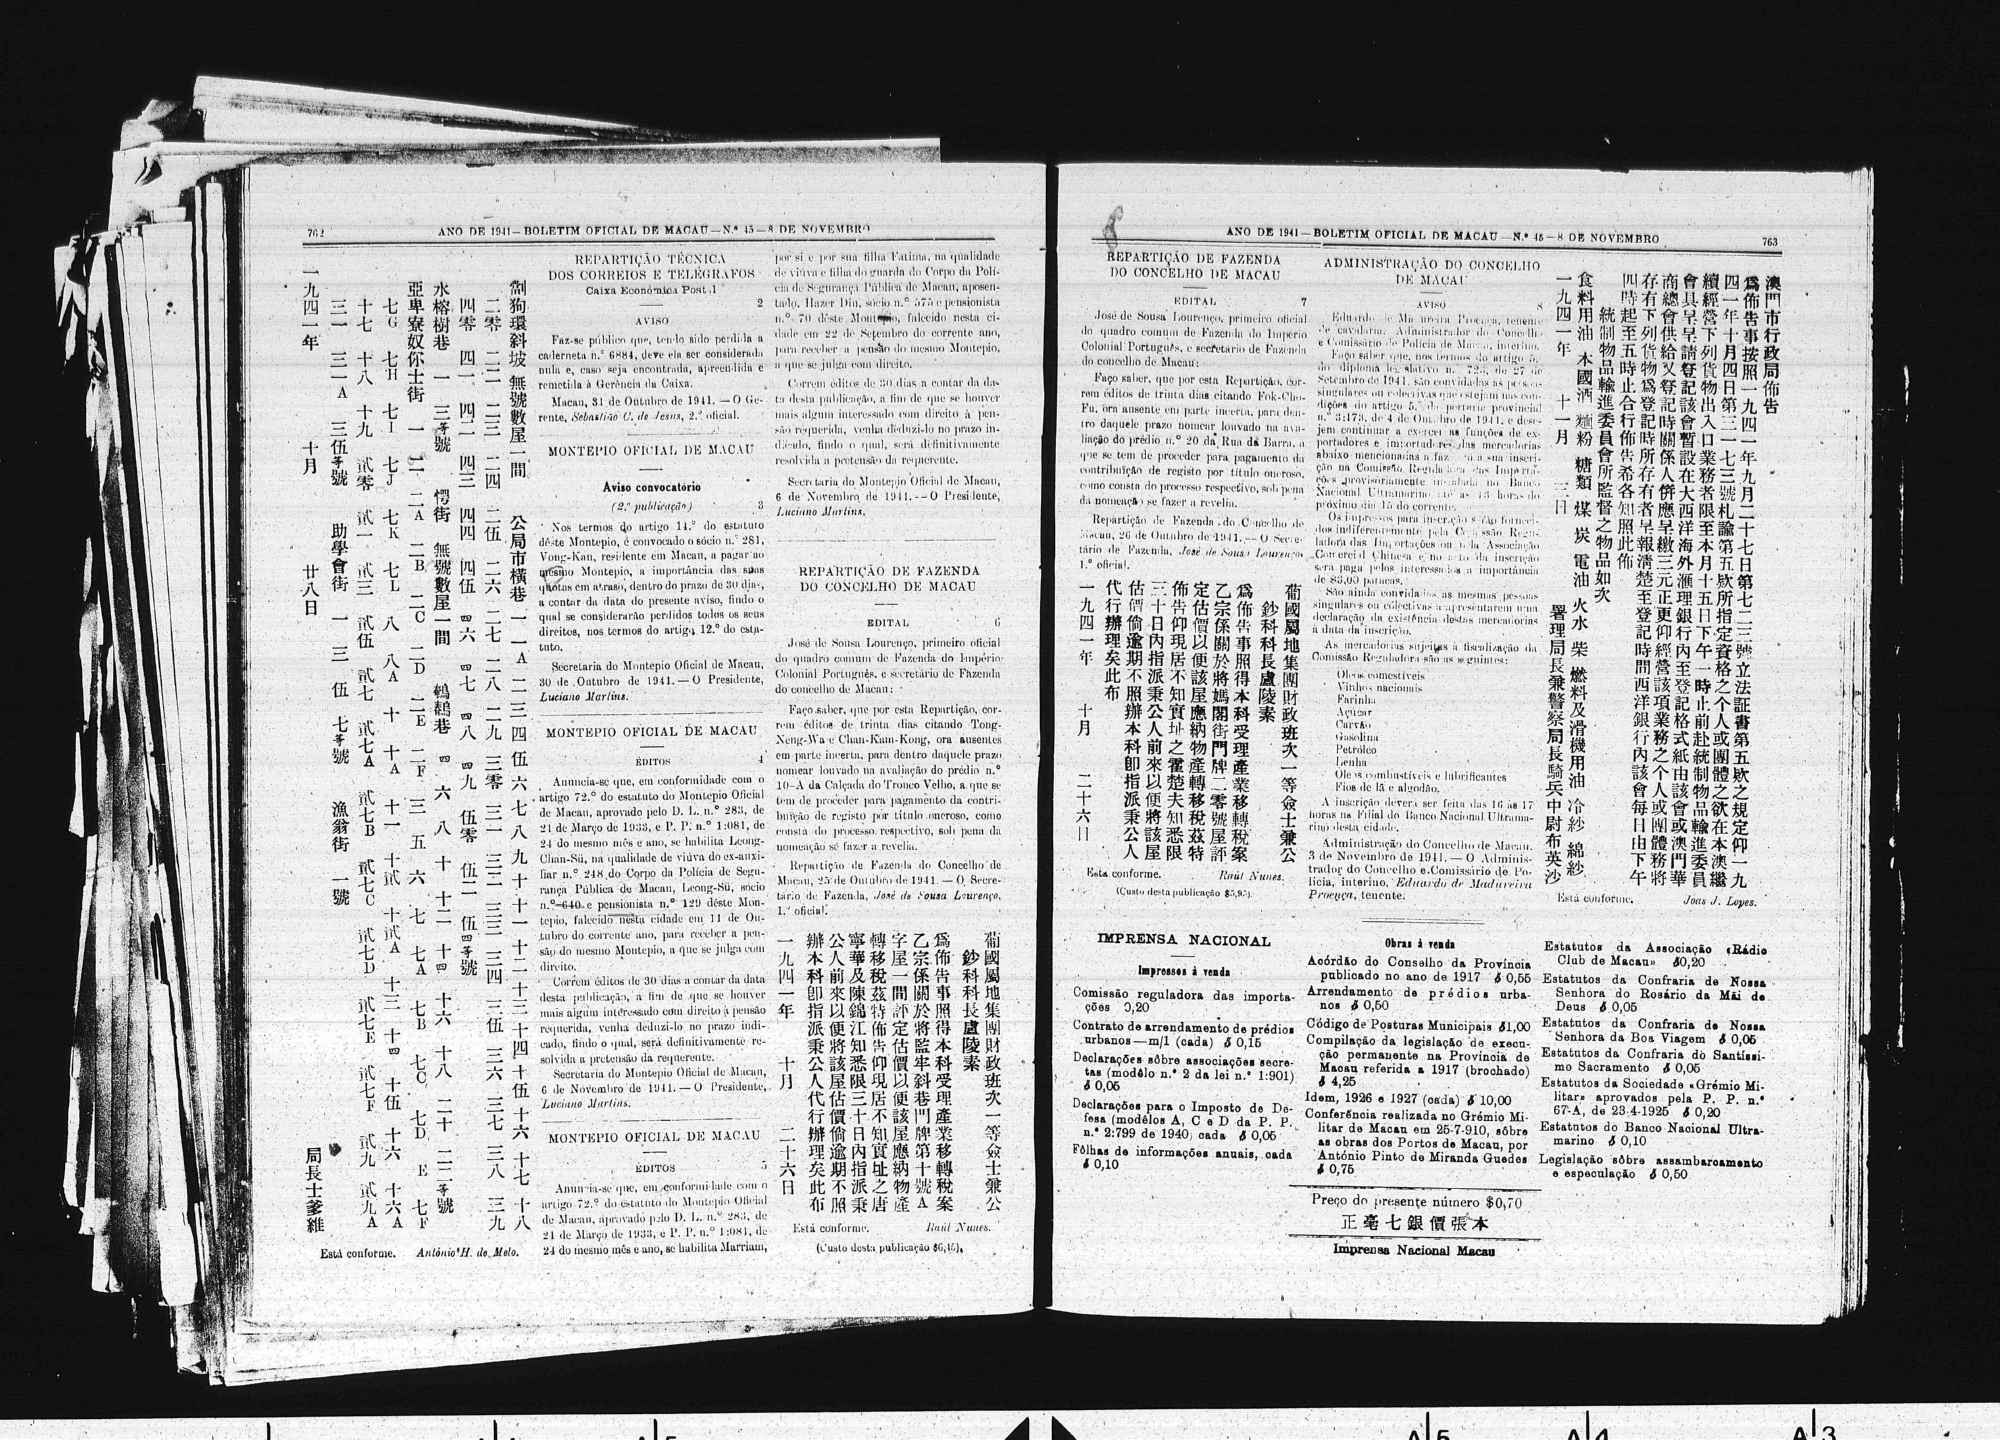 762
ANO DE 1941 — BOLETIM OFICIAL DE MACAU — N.º 45 — 8 DE NOVEMBRO
劏狗環斜坡 無號數屋一間 公局市橫巷 一 一A 二 三 四 伍 六 七 八 九 十 十一 十二 十三 十四 十伍 十六 十七 十八
二零 二一 二三 二四 二伍 二六 二七 二八 二九 三零 三一 三二 三三 三四 三伍 三六 三七 三八 三九
四零 四一 四二 四三 四四 四伍 四六 四七 四八 四九 伍零 伍二 伍四等號
水榕樹巷 一 三等號 愕街 無號數屋一間 鵪鶉巷 四 六 八 十 十二 十四 十六 十八 二十 二二等號
亞卑寮奴你士街 一 二 二A 二B 二C 二D 二E 二F 三 五 六 七 七A 七B 七C 七D E 七F
七G 七H 七I 七J 七K 七L 八 八A 十 十A 十一 十貳 十貳A 十三 十四 十伍 十六 十六A
十七 十八 十九 貳零 貳一 貳三 貳伍 貳七 貳七A 貳七B 貳七C 貳七D 貳七E 貳七F 貳九 貳九A
三一 三一A 三伍等號 助學會街 一 三 伍 七等號 漁翁街 一號
一九四一年 十月 廿八日 局長士爹維
Está conforme. António H. de Melo.
REPARTIÇÃO TÉCNICA
DOS CORREIOS E TELÉGRAFOS
Caixa Económica Postal
2
AVISO
Faz-se público que, tendo sido perdida a
caderneta n.º 6884, deve ela ser considerada
nula e, caso seja encontrada, apreendida e
remetida à Gerência da Caixa.
Macau, 31 de Outubro de 1941. — O Ge-
rente, Sebastião C. de Jesus, 2.º oficial.
MONTEPIO OFICIAL DE MACAU
Aviso convocatório
(2.ª publicação) 3
Nos termos do artigo 14.º do estatuto
dêste Montepio, é convocado o sócio n.º 281,
Vong-Kan, residente em Macau, a pagar ao
mesmo Montepio, a importância das suas
quotas em atraso, dentro do prazo de 30 dias,
a contar da data do presente aviso, findo o
qual se considerarão perdidos todos os seus
direitos, nos termos do artigo 12.º do esta-
tuto.
Secretaria do Montepio Oficial de Macau,
30 de Outubro de 1941. — O Presidente,
Luciano Martins.
MONTEPIO OFICIAL DE MACAU
ÉDITOS 4
Anuncia-se que, em conformidade com o
artigo 72.º do estatuto do Montepio Oficial
de Macau, aprovado pelo D. L. n.º 283, de
21 de Março de 1933, e P. P. n.º 1:081, de
24 do mesmo mês e ano, se habilita Leong-
Chan-Sü, na qualidade de viúva do ex-auxi-
liar n.º 248 do Corpo da Polícia de Segu-
rança Pública de Macau, Leong-Sü, sócio
n.º 640 e pensionista n.º 129 dêste Mon-
tepio, falecido nesta cidade em 11 de Ou-
tubro do corrente ano, para receber a pen-
são do mesmo Montepio, a que se julga com
direito.
Correm éditos de 30 dias a contar da data
desta publicação, a fim de que se houver
mais algum interessado com direito à pensão
requerida, venha deduzi-lo no prazo indi-
cado, findo o qual, será definitivamente re-
solvida a pretensão da requerente.
Secretaria do Montepio Oficial de Macau,
6 de Novembro de 1941. — O Presidente,
Luciano Martins.
MONTEPIO OFICIAL DE MACAU
ÉDITOS 5
Anuncia-se que, em conformidade com o
artigo 72.º do estatuto do Montepio Oficial
de Macau, aprovado pelo D. L. n.º 283, de
21 de Março de 1933, e P. P. n.º 1:081, de
24 do mesmo mês e ano, se habilita Marriam,
por si e por sua filha Fatima, na qualidade
de viúva e filha do guarda do Corpo da Polí-
cia de Segurança Pública de Macau, aposen-
tado, Hazer Din, sócio n.º 575 e pensionista
n.º 70 dêste Montepio, falecido nesta ci-
dade em 22 de Setembro do corrente ano,
para receber a pensão do mesmo Montepio,
a que se julga com direito.
Correm éditos de 30 dias a contar da da-
ta desta publicação, a fim de que se houver
mais algum interessado com direito à pen-
são requerida, venha deduzi-lo no prazo in-
dicado, findo o qual, será definitivamente
resolvida a pretensão da requerente.
Secretaria do Montepio Oficial de Macau,
6 de Novembro de 1941. — O Presidente,
Luciano Martins.
REPARTIÇÃO DE FAZENDA
DO CONCELHO DE MACAU
EDITAL 6
José de Sousa Lourenço, primeiro oficial
do quadro comum de Fazenda do Império
Colonial Português, e secretário de Fazenda
do concelho de Macau:
Faço saber, que por esta Repartição, cor-
rem éditos de trinta dias citando Tong-
Neng-Wa e Chan-Kam-Kong, ora ausentes
em parte incerta, para dentro daquele prazo
nomear louvado na avaliação do prédio n.º
10-A da Calçada do Tronco Velho, a que se
tem de proceder para pagamento da contri-
buïção de registo por título oneroso, como
consta do processo respectivo, sob pena da
nomeação se fazer a revelia.
Repartição de Fazenda do Concelho de
Macau, 25 de Outubro de 1941. — O Secre-
tário de Fazenda, José de Sousa Lourenço,
1.º oficial.
葡國屬地集團財政班次一等僉士兼公
鈔科科長盧陵素
爲佈告事照得本科受理產業移轉稅案
乙宗係關於將監牢斜巷門牌第十號A
字屋一間評定估價以便該屋應納物產
轉移稅茲特佈告仰現居不知實址之唐
寧華及陳錦江知悉限三十日內指派秉
公人前來以便將該屋估價倘逾期不照
辦本科卽指派秉公人代行辦理矣此布
一九四一年 十月 二十六日
Está conforme. Raúl Nunes.
(Custo desta publicação $6,45).
ANO DE 1941 — BOLETIM OFICIAL DE MACAU — N.º 45 — 8 DE NOVEMBRO
763
REPARTIÇÃO DE FAZENDA
DO CONCELHO DE MACAU
EDITAL 7
José de Sousa Lourenço, primeiro oficial
do quadro comum de Fazenda do Império
Colonial Português, e secretário de Fazenda
do concelho de Macau:
Faço saber, que por esta Repartição, cor-
rem éditos de trinta dias citando Fok-Cho-
Fu, ora ausente em parte incerta, para den-
tro daquele prazo nomear louvado na ava-
liação do prédio n.º 20 da Rua da Barra, a
que se tem de proceder para pagamento da
contribuïção de registo por título oneroso,
como consta do processo respectivo, sob pena
da nomeação se fazer a revelia.
Repartição de Fazenda do Concelho de
Macau, 26 de Outubro de 1941. — O Secre-
tário de Fazenda, José de Sousa Lourenço,
1.º oficial.
葡國屬地集團財政班次一等僉士兼公
鈔科科長盧陵素
爲佈告事照得本科受理產業移轉稅案
乙宗係關於將媽閣街門牌二零號屋評
定估價以便該屋應納物產轉移稅茲特
佈告仰現居不知實址之霍楚夫知悉限
三十日內指派秉公人前來以便將該屋
估價倘逾期不照辦本科卽指派秉公人
代行辦理矣此布
一九四一年 十月 二十六日
Está conforme. Raúl Nunes.
(Custo desta publicação $5,95).
ADMINISTRAÇÃO DO CONCELHO
DE MACAU
AVISO 8
Eduardo de Madureira Proença, tenente
de cavalaria, Administrador do Concelho
e Comissário de Polícia de Macau, interino.
Faço saber que, nos termos do artigo 5.
do diploma legislativo n.º 723, de 27 de
Setembro de 1941, são convidadas as pessoas
singulares ou colectivas que estejam nas con-
dições do artigo 5.º da portaria provincial
n.º 3:173, de 4 de Outubro de 1941, e dese-
jem continuar a exercer as funções de ex-
portadores e importadores das mercadorias
abaixo mencionadas a fazerem a sua inscri-
ção na Comissão Reguladora das Importa-
ções provisoriamente instalada no Banco
Nacional Ultramarino até as 13 horas do
próximo dia 15 do corrente.
Os impressos para inscrição serão forneci-
dos indiferentemente pela Comissão Regu-
ladora das Importações ou pela Associação
Comercial Chinesa e no acto da inscrição
será paga pelos interessados a importância
de $3,00 patacas.
São ainda convidadas as mesmas pessoas
singulares ou colectivas a apresentarem uma
declaração da existência destas mercadorias
à data da inscrição.
As mercadorias sujeitas à fiscalização da
Comissão Reguladora são as seguintes:
Oleos comestíveis
Vinhos nacionais
Farinha
Açúcar
Carvão
Gasolina
Petróleo
Lenha
Oleos combustíveis e lubrificantes
Fios de lã e algodão.
A inscrição deverá ser feita das 16 às 17
horas na Filial do Banco Nacional Ultrama-
rino desta cidade.
Administração do Concelho de Macau,
3 de Novembro de 1941. — O Adminis-
trador do Concelho e Comissário de Po-
lícia, interino, Eduardo de Madureira
Proença, tenente.
澳門市行政局佈告
爲佈告事按照一九四一年九月二十七日第七二三號立法証書第五欵之規定仰一九
四一年十月四日第三一七三號札諭第五欵所指定資格之个人或團體之欲在本澳繼
續經營下列貨物出入口業務者限至本月十五日下午一時止前赴統制物品輸進委員
會具呈呈請登記該會暫設在大西洋海外滙理銀行內至登記格式紙由該會或澳門華
商總會供給又登記時關係人併應呈繳三元正更仰經營該項業務之个人或團體務將
存有下列貨物爲登記時所存有者呈報清楚至登記時間西洋銀行內該會每日由下午
四時起至五時止合行佈告希各知照此佈
統制物品輸進委員會所監督之物品如次
食料用油 本國酒 麵粉 糖類 煤 炭 電油 火水 柴 燃料及滑機用油 冷紗 綿紗
一九四一年 十一月 三日 署理局長兼警察局長騎兵中尉布英沙
Está conforme. Joas J. Lopes.
IMPRENSA NACIONAL
Impressos à venda
Comissão reguladora das importa-
ções 0,20
Contrato de arrendamento de prédios
urbanos — m/1 (cada) $ 0,15
Declarações sôbre associações secre-
tas (modêlo n.º 2 da lei n.º 1:901)
$ 0,05
Declarações para o Imposto de De-
fesa (modêlos A, C e D da P. P.
n.º 2:799 de 1940) cada $ 0,05
Fôlhas de informações anuais, cada
$ 0,10
Obras à venda
Acórdão do Conselho da Província
publicado no ano de 1917 $ 0,55
Arrendamento de prédios urba-
nos $ 0,50
Código de Posturas Municipais $1,00
Compilação da legislação de execu-
ção permanente na Província de
Macau referida a 1917 (brochado)
$ 4,25
Idem, 1926 e 1927 (cada) $ 10,00
Conferência realizada no Grémio Mi-
litar de Macau em 25-7-910, sôbre
as obras dos Portos de Macau, por
António Pinto de Miranda Guedes
$ 0,75
Estatutos da Associação «Rádio
Club de Macau» $0,20
Estatutos da Confraria de Nossa
Senhora do Rosário da Mãi de
Deus $ 0,05
Estatutos da Confraria de Nossa
Senhora da Boa Viagem $ 0,05
Estatutos da Confraria do Santíssi-
mo Sacramento $ 0,05
Estatutos da Sociedade «Grémio Mi-
litar» aprovados pela P. P. n.º
67-A, de 23-4-1925 $ 0,20
Estatutos do Banco Nacional Ultra-
marino $ 0,10
Legislação sôbre assambarcamento
e especulação $ 0,50
Preço do presente número $0,70
正毫七銀價張本
Imprensa Nacional Macau
A 5
A 4
A 3